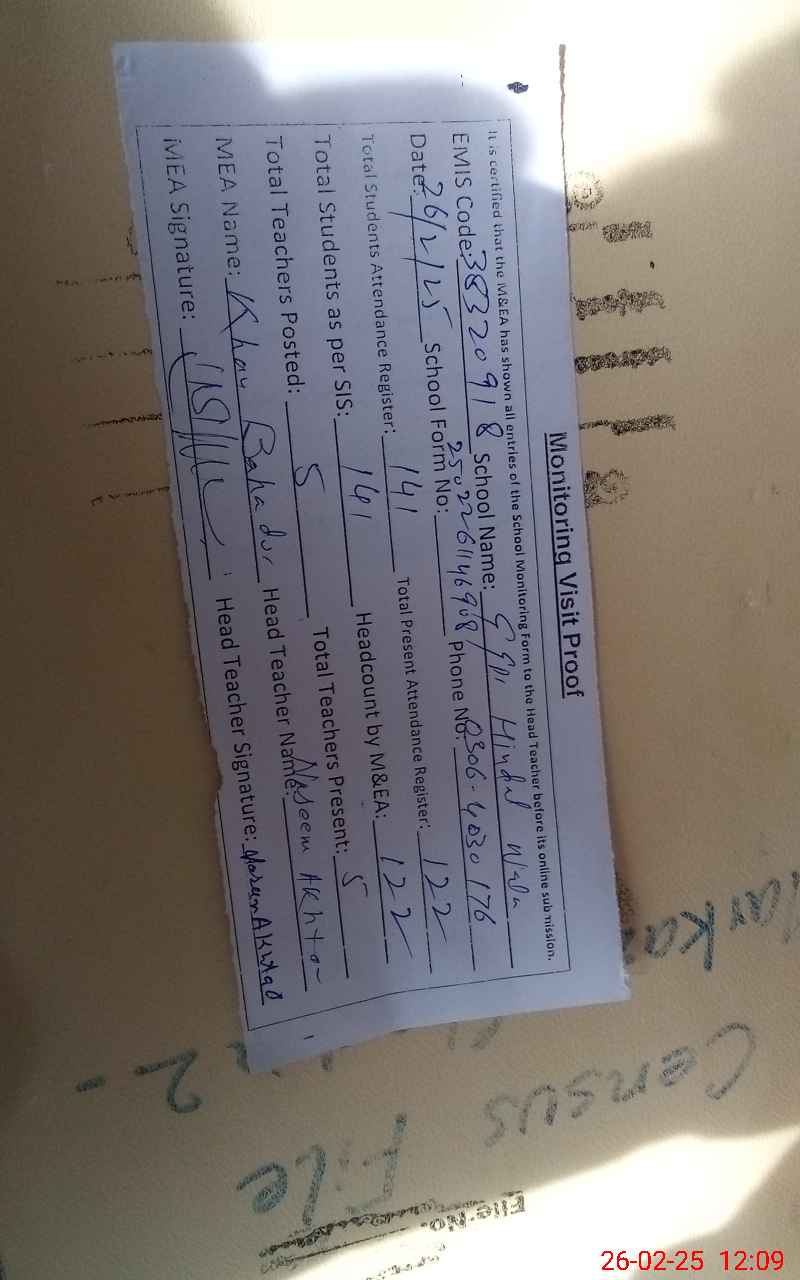 Monitoring Visit Proof
It is certified that the M&EA has shown all entries of the School Monitoring Form to the Head Teacher before its online submission.
EMIS Code: 38320918 School Name: Hindal Wala
Date: 26/2/25 School Form No: 2502261146908 Phone No: 0306-4030176
Total Students Attendance Register: 141 Total Present Attendance Register: 122
Total Students as per SIS: 141 Headcount by M&EA: 122
Total Teachers Posted: 5 Total Teachers Present: 5
MEA Name: Khan Bahadur Head Teacher Name: Naseem Akhtar
MEA Signature: Head Teacher Signature: Akhtar
Census File
File No.
26-02-25 12:09